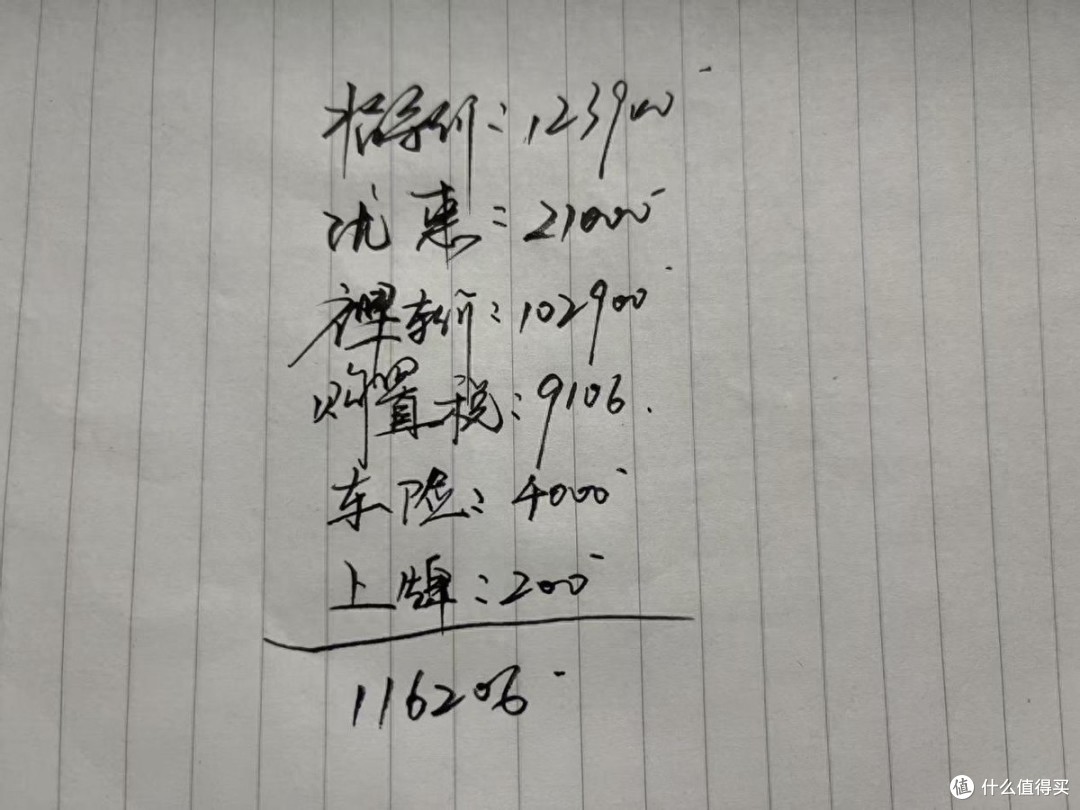 指导价：123900
优惠：21000
裸车价：102900
购置税：9106.
车险：4000
上牌：200
116206
值 什么值得买